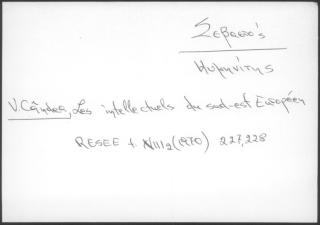 Σεβαστός
Κυμινήτης
V. Cândea, Les intellectuels du sud-est Européen
RESEE t. VIII2 (1970) 227,228